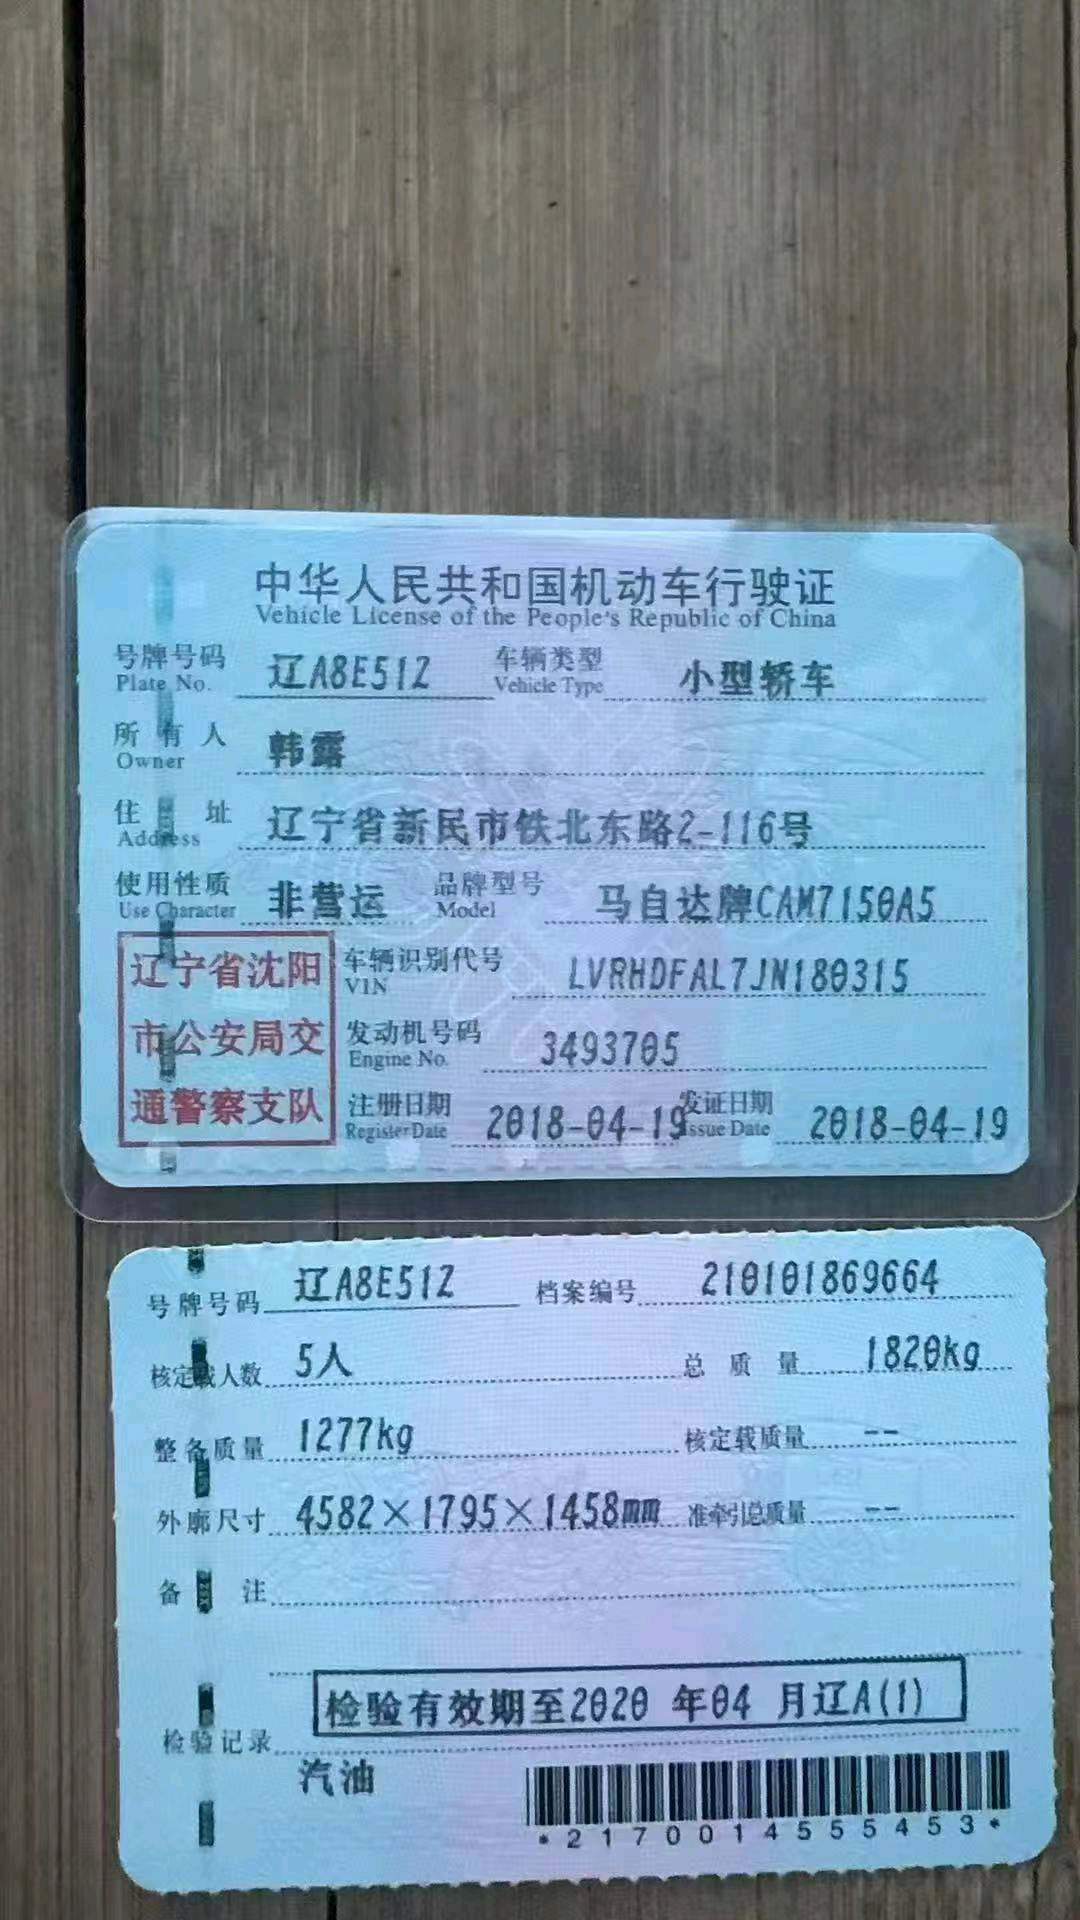 中华人民共和国机动车行驶证
Vehicle License of the People's Republic of China
号牌号码 辽A8E51Z 车辆类型 小型轿车
Plate No. Vehicle Type
所有人 韩露
Owner
住址 辽宁省新民市铁北东路2-116号
Address
使用性质 非营运 品牌型号 马自达牌CAM7150A5
Use Character Model
辽宁省沈阳
市公安局交
通警察支队
车辆识别代号 LVRHDFAL7JN180315
VIN
发动机号码 3493705
Engine No.
注册日期 2018-04-19 发证日期 2018-04-19
Register Date Issue Date
号牌号码 辽A8E51Z 档案编号 210101869664
核定载人数 5人 总质量 1820kg
整备质量 1277kg 核定载质量 --
外廓尺寸 4582×1795×1458mm 准牵引总质量 --
备注
检验有效期至2020 年04 月辽A(1)
检验记录
汽油
*2170014555453*